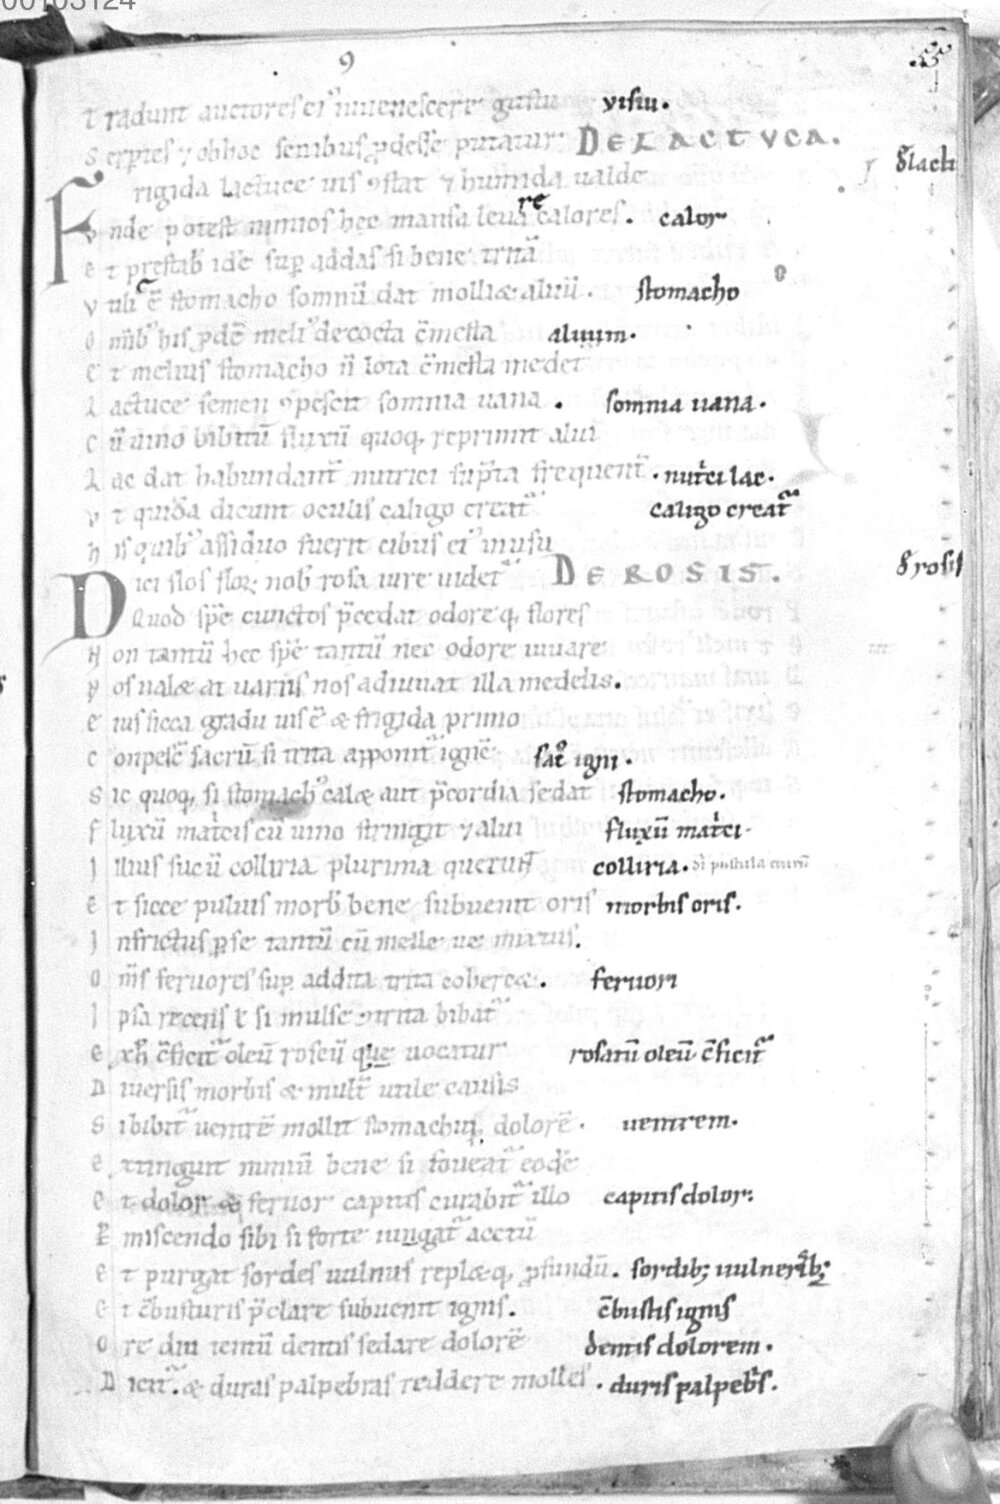 00103124
9
55
Tradunt auctores ei' inuenescere gustu visiu.
Serpies ⁊ obhoc senibus ꝓdesse putatur DE LACTVCA.
Frigida lactuce uis ꝯstat ⁊ humida ualde
ð lacti
Vnde potest nimios hęc mansa leuare calores. calor
Et pręstab idē suꝑ addas si bene tritā
Vtilis ē stomacho somnū dat mollit aluū. stomacho
Omīb his ꝓdē meli' decocta c̄mesta aluum.
Et melius stomacho n̄ lota c̄mesta medet
Lactuce semen ꝯpescit somnia uana. somnia uana.
Cū uino bibitū fluxū quoq, reprimit alui
Lac dat habundant̄ nutrici sūpta frequent̄. nutci lac.
Vt quidā dicunt oculis caligo creat caligo creat
His quib assiduo fuerit cibus ei' in usu
Dici flos flor nob rosa iure uidet' DE ROSIS.
ð rosis
Quod spē cunctos p̄cedat odoreq, flores
Non tantū hec spē tantū nec odore iuuare
Nos ualet at uariis nos adiuuat illa medelis.
Eius sicca gradu uis ē et frigida primo
Conpesc̄ sacrū si trita apponit' ignē sac° igni.
Sic quoq, si stomach' calet aut p̄cordia sedat stomacho.
Fluxū matcis cū uino stringit ⁊ alui fluxū matci.
Illius sucū colliria plurima querunt colliria.
Et sicce puluis morb bene subuenit oris morbis oris.
Infrictus ꝑ se tantū cū melle ue mixtus.
Om̄s feruores suꝑ addita trita cohercet. feruori
Ipsa recens t si mulse trita bibat'
Exh c̄ficit' oleū roseū que uocatur rosatū oleū c̄ficit'
Diuersis morbis et mult utile causis
Si bibit' uentrē mollit stomachiq, dolorē. uentrem.
Extinguit nimiū bene si foueat' eodē
Et dolor et feruor capitis curabit' illo capitis dolor:
Pmiscendo sibi si forte iungat' acetū
Et purgat sordes uulnus repletq, ꝓfundū. sordib; uulnerib;
Et c̄busturis p̄clare subuenit ignis. c̄bustis ignis
Ore diu tentū dentis sedare dolorē dentis dolorem.
Dicit'. et duras palpebras reddere molles. duris palpebs.